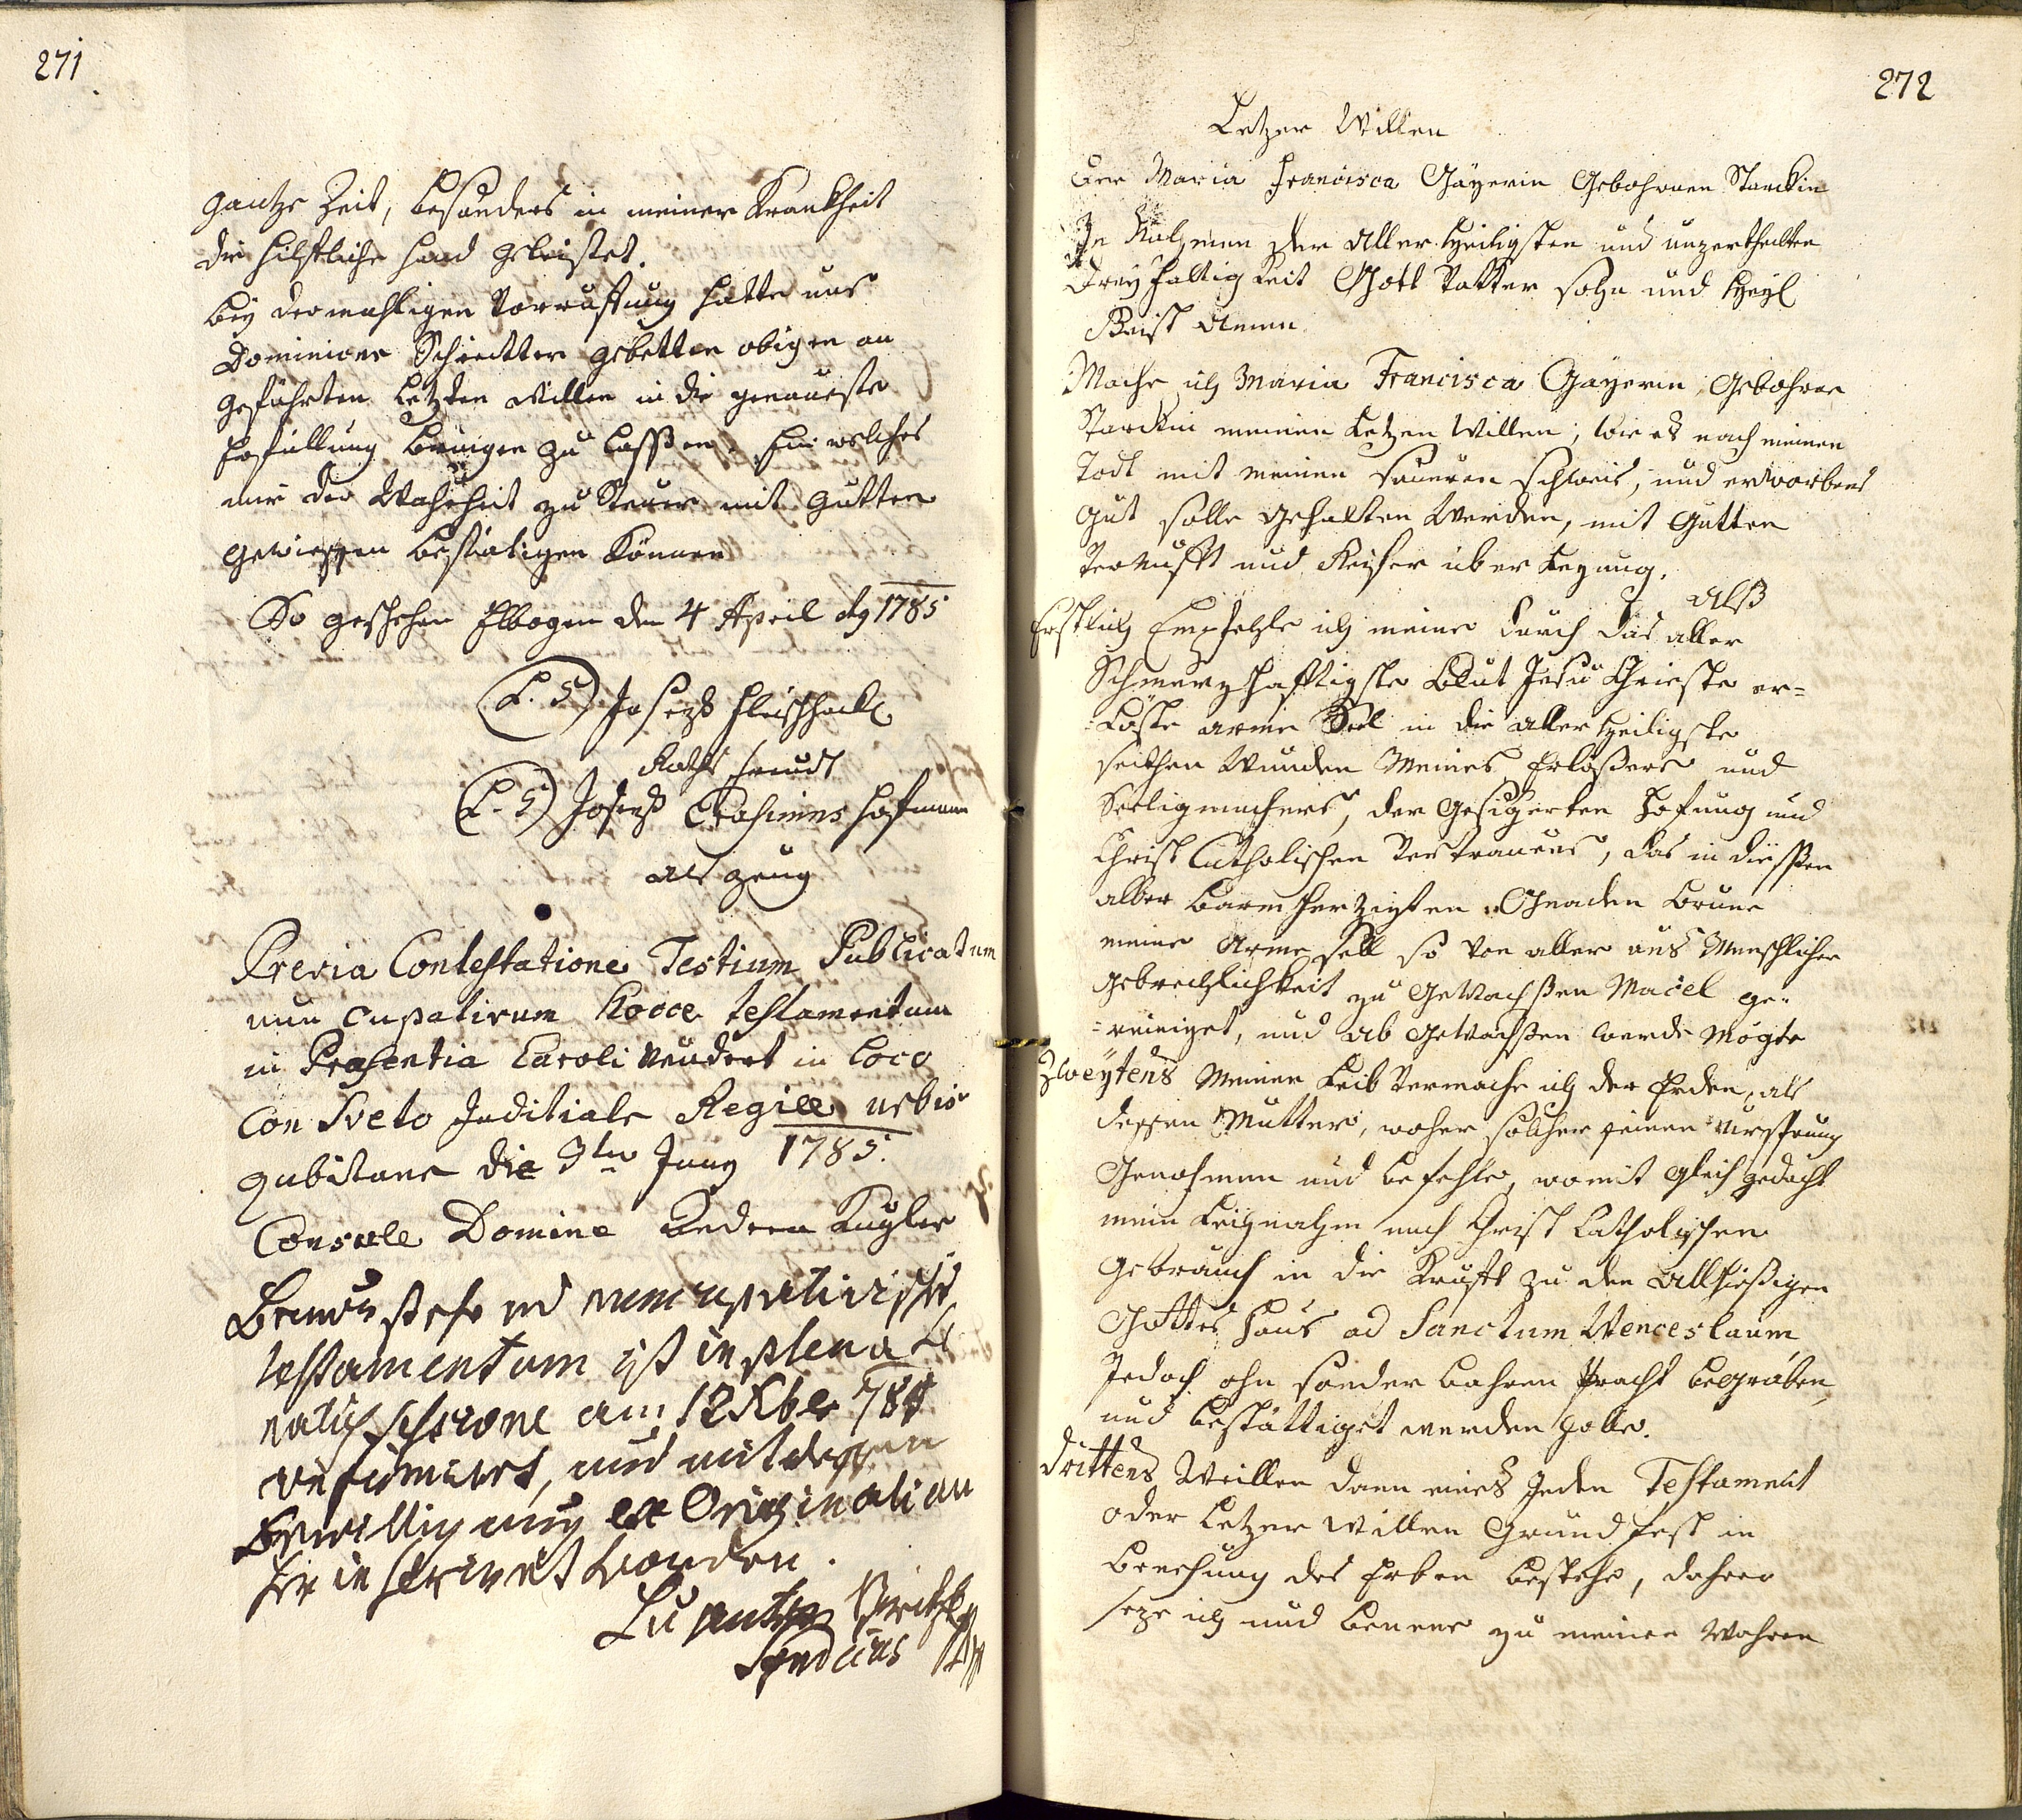 271
gantze Zeit, besonders in meiner Krankheit
die hilfliche Hand geleistet.
bey dermahligen Vorruffung hatte uns
Dominicus Schiertter gebetten obigen an
geführten Letzten Willen in die genaueste
Erfüllung bringen zu lassen, Ein welches
wir der Wahrheit zu Steuer mit gutten
gewissen bestätigen können
So geschehen Ellbogen den 4 April 1785
(L. S) Joseph Fleischhackl
Raths freund
(L. S) Joseph Erasimus Hofmann
als Zeug
Previa Contestatione Testium Publicatum
nun cupativum hocce testamentum
in Præsentia Caroli in Loco
Con Sveto Juditiale Regiæ urbis
Cubitane die Juny 1785.
Consule Domine Andrea Kugler
nuncupativische
testamentum ist in plena
Sessione am 12 Xber 784
und mit dessen
Bewilligung ex Originali an
her inscribirt worden.
Syndicus
272
Letzer Willen
Der Maria Francisca Gäyerin Gebohrnen Starckin
In Nahmen der Aller Heiligsten und unzertheilten
Dreyfaltigkeit Gott Vatter sohn und Heyl
Geist Amen.
Mache ich Maria Francisca Gäyerin, Gebohrne
Starckin meinen Letzen Willen, wie es nach meinen
Todt mit meinen saueren schweis, und erworbens
gut solle gehalten Werden, mit Gutten
Vernufft und Reifer überlegung.
Alß
Erstlich Empfehle ich meine durch das aller
Schmerzhafftigste Blut Jesu Christe er=
=Löste arme Seel in die aller Heiligste
seithen Wunden Meines Erlößers und
Seeligmachers, der gesicherten Hofnung und
Christ Catholischen Vertrauens, das in dießen
aller barmherzigten Gnaden brune
meine Arme sell so von aller aus Menschlicher
gebrechlichkeit zu gewachßen Macel ge=
=reiniget, und ab gewachßen werde mögte
Zweÿtens Meinen Leib Vermache ich der Erden, als
dessen Mutter, woher solcher seinen Ursprung
Genohmen und befehle, womit gleich gedacht
mein Leignahm nach Christ Catholischen
gebrauch in die Krufft zu den allhießigen
Gottes Haus ad Sanctum Wenceslaum
Jedoch ohn sonder bahren Pracht begraben,
und bestättiget werden solle.
Drittens Weillen dann eines Jeden Testament
oder Letzer Willen Grund fest in
benehung des Erben bestehe, dahero
seze ich und benene zu meinen Wahren